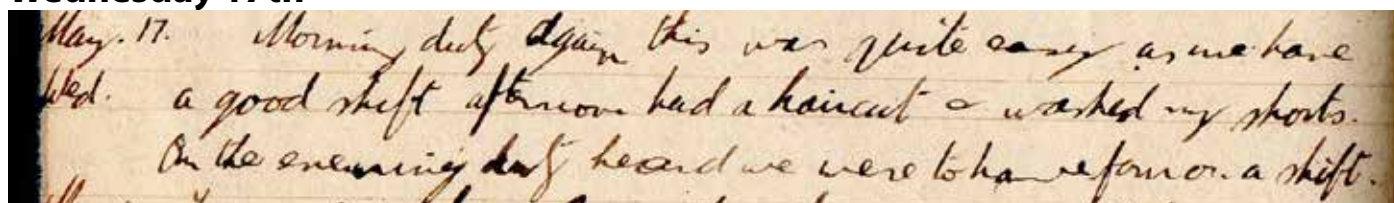 Wednesday 17th
May. 17. Morning duty again this was quite easy as we have
Wed. a good shift afternoon had a haircut & washed my shorts.
On the evening duty heard we were to have four on a shift.